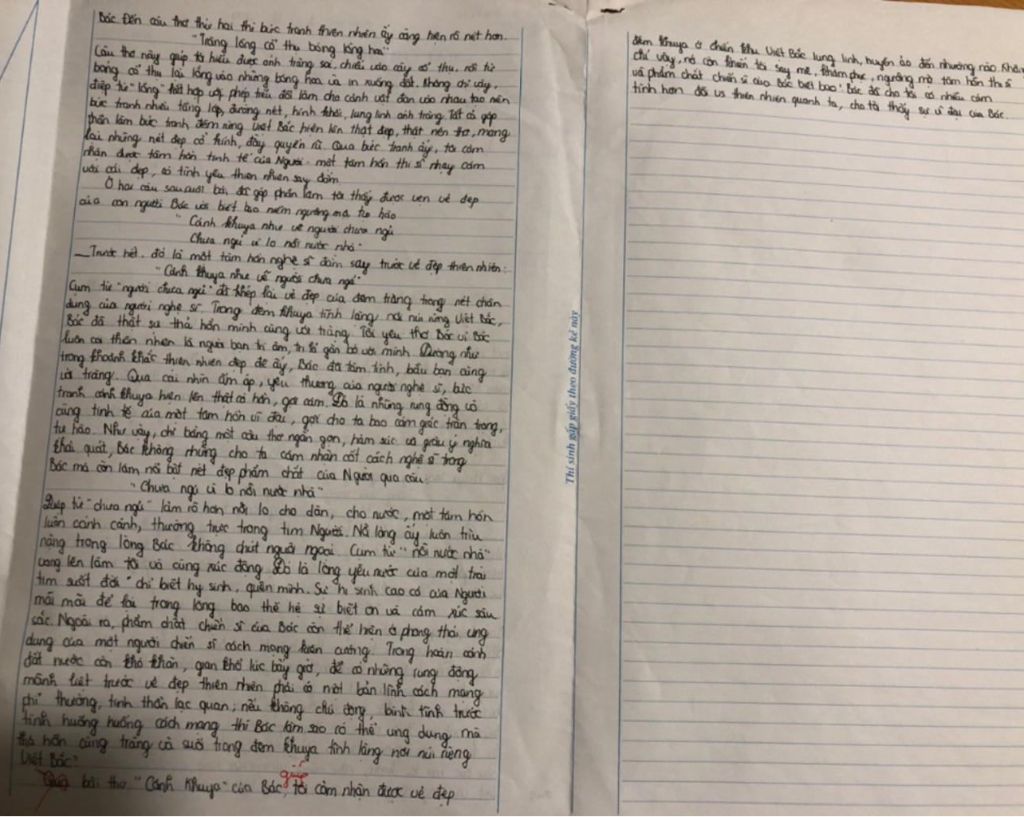 Bác. Đến câu thơ thứ hai thì bức tranh thiên nhiên ấy càng hiện rõ nét hơn.
"Trăng lồng cổ thụ bóng lồng hoa"
Câu thơ này giúp ta hiểu được ánh trăng soi, chiếu vào cây cổ thụ, rồi từ
bóng cổ thụ lại lồng vào những bóng hoa và in xuống đất. Không chỉ vậy,
điệp từ "lồng" kết hợp với phép tiểu đối làm cho cảnh vật đan vào nhau tạo nên
bức tranh nhiều tầng lớp, đường nét, hình khối, lung linh ánh trăng. Tất cả góp
phần làm bức tranh đêm rừng Việt Bắc hiện lên thật đẹp, thật nên thơ, mang
lại những nét đẹp cổ kính, đầy quyến rũ. Qua bức tranh ấy, tôi cảm
nhận được tâm hồn tinh tế của Người - một tâm hồn thi sĩ nhạy cảm
với cái đẹp, có tình yêu thiên nhiên say đắm.
Ở hai câu sau cuối bài, đã góp phần làm tôi thấy được vẻ đẹp
của con người Bác với biết bao niềm ngưỡng mộ, tự hào
"Cảnh khuya như vẽ người chưa ngủ
Chưa ngủ vì lo nỗi nước nhà."
Trước hết, đó là một tâm hồn nghệ sĩ đắm say trước vẻ đẹp thiên nhiên:
"Cảnh khuya như vẽ người chưa ngủ"
Cụm từ "người chưa ngủ" đã khép lại vẻ đẹp của đêm trăng trong nét chân
dung của người nghệ sĩ. Trong đêm khuya tĩnh lặng nơi núi rừng Việt Bắc,
Bác đã thật sự thả hồn mình cùng với trăng. Tôi yêu thơ Bác vì Bác
luôn coi thiên nhiên là người bạn tri âm, tri kỉ gắn bó với mình. Dường như
trong khoảnh khắc thiên nhiên đẹp đẽ ấy, Bác đã tâm tình, bầu bạn cùng
với trăng. Qua cái nhìn ấm áp, yêu thương của người nghệ sĩ, bức
tranh cảnh khuya hiện lên thật có hồn, gợi cảm. Đó là những rung động vô
cùng tinh tế của một tâm hồn vĩ đại, gợi cho ta bao cảm giác trân trọng,
tự hào. Như vậy, chỉ bằng một câu thơ ngắn gọn, hàm súc và giàu ý nghĩa
khái quát, Bác không những cho ta cảm nhận cốt cách nghệ sĩ trong
Bác mà còn làm nổi bật nét đẹp phẩm chất của Người qua câu:
"Chưa ngủ vì lo nỗi nước nhà"
Điệp từ "chưa ngủ" làm rõ hơn nỗi lo cho dân, cho nước, một tâm hồn
luôn canh cánh, thường trực trong tim Người. Nỗi lòng ấy luôn trĩu
nặng trong lòng Bác không chút nguôi ngoai. Cụm từ "nỗi nước nhà"
vang lên làm tôi vô cùng xúc động. Đó là lòng yêu nước của một trái
tim suốt đời chỉ biết hy sinh, quên mình. Sự hi sinh cao cả của Người
mãi mãi để lại trong lòng bao thế hệ sự biết ơn và cảm xúc sâu
sắc. Ngoài ra, phẩm chất chiến sĩ của Bác còn thể hiện ở phong thái ung
dung của một người chiến sĩ cách mạng kiên cường. Trong hoàn cảnh
đất nước còn khó khăn, gian khổ lúc bấy giờ, để có những rung động
mãnh liệt trước vẻ đẹp thiên nhiên phải có một bản lĩnh cách mạng
phi thường, tinh thần lạc quan; nếu không chủ động, bình tĩnh trước
tình huống huống cách mạng thì Bác làm sao có thể ung dung mà
thả hồn cùng trăng và suối trong đêm khuya tĩnh lặng nơi núi rừng
Việt Bắc?
Qua bài thơ "Cảnh khuya" của Bác, giúp tôi cảm nhận được vẻ đẹp
đêm khuya ở chiến khu Việt Bắc lung linh, huyền ảo đến nhường nào. Không
chỉ vậy, nó còn khiến tôi say mê, khâm phục, ngưỡng mộ tâm hồn thi sĩ
và phẩm chất chiến sĩ của Bác biết bao! Bác đã cho tôi có nhiều cảm
tình hơn đối với thiên nhiên quanh ta, cho tôi thấy sự vĩ đại của Bác.
Thí sinh gấp giấy theo đường kẻ này